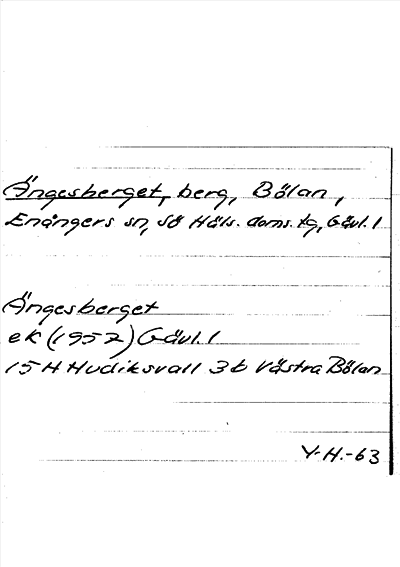 Ängesberget, berg, Bölan,
Enångers sn, sö Häls. doms. tg, Gävl. l
Ängesberget
ek (1952) Gävl. l
15 H Hudiksvall 3b Västra Bölan
Y-H.-63